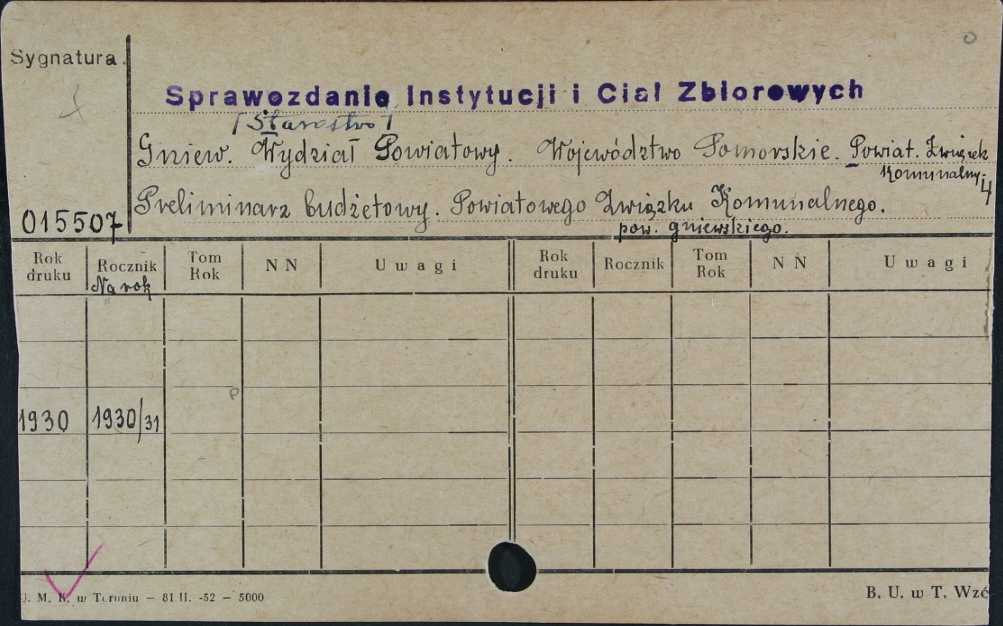 Sygnatura
Sprawozdanie Instytucji i Ciał Zbiorowych
/Starostwo/
Gniew. Wydział Powiatowy. Województwo Pomorskie. Powiat. Związek
Komunalny.
Preliminarz budżetowy. Powiatowego Związku Komunalnego.
pow. gniewskiego.
015507
Rok druku Rocznik Tom Rok NN Uwagi Rok druku Rocznik Tom Rok NN Uwagi
Na rok
1930 1930/31
w Toruniu — 81 II. -52 — 5000
B. U. w T.